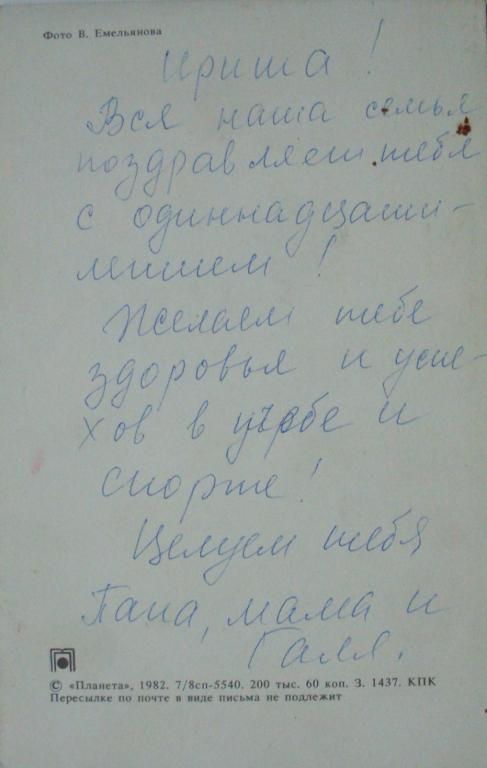 Фото В. Емельянова
Ириша!
Вся наша семья
поздравляет тебя
с одиннадцати-
летием!
Желаем тебе
здоровья и успе-
хов в учёбе и
спорте!
Целуем тебя
Папа, мама и
Галя.
© «Планета», 1982. 7/8сп-5540. 200 тыс. 60 коп. З. 1437. КПК
Пересылке по почте в виде письма не подлежит